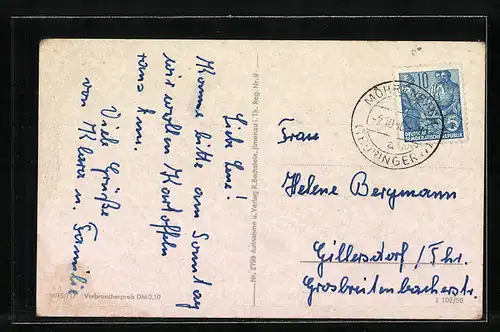 Liebe Lene!
Komme bitte am Sonntag
wir wollen Kartoffeln
raus tun.
Viele Grüße
von Klara u. Familie
Verbraucherpreis DM 0,10
Nr. 2798 Aufnahme u. Verlag R. Bechstein, Ilmenau i. Th. Reg. Nr. 9
10
5
DEUTSCHE
DEMOKRATISCHE
REPUBLIK
(THÜRINGER
a
Frau
Helene Bergmann
Gillersdorf/Thr.
Grosbreitenbacherstr.
L 102/56